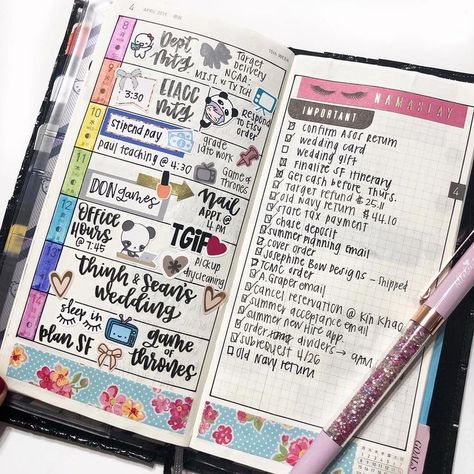 4 APRIL 2019
15th WEEK
8
Dept.
Mtg
Target
Delivery
NCAA:
MIST. v TX TCH
9
3:30
EIACC
Mtg
Respond
to Etsy
order
10
stipend pay
paul teaching @ 4:30
grade
late work
Game of
Thrones
11
DON Games
nail
APPT. @
4 PM
12
OFFICE
HOURS
@ 7:45
TGIF
Pickup
drycleaning
13
Thinh & Sean's
wedding
14
sleep in
plan SF
game of
thrones
NAMASLAY
IMPORTANT
confirm ASOS return
wedding card
wedding gift
Finalize SF itinerary
Get cash before Thurs.
Target refund $25.11
Old Navy return $44.10
state tax payment
chase deposit
summer planning email
cover order
Josephine Bow Designs - shipped
TCMC order
A. Graper email
cancel reservation @ Kin Khao
summer acceptance email
summer new hire app.
order dividers → 9AM
subrequest 4/26
Old Navy return
4
GOALS